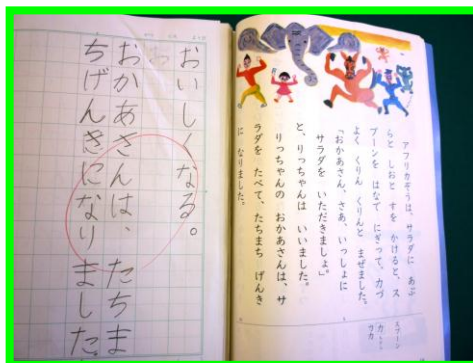 アフリカぞうは、サラダに あぶ
らと しおと すを かけると、ス
プーンを はなで にぎって、力づ
よく くりん くりんと まぜました。
「おかあさん、さあ、いっしょに
サラダを いただきましょ」
と、りっちゃんは いいました。
りっちゃんの おかあさんは、サ
ラダを たべて、たちまち げんき
に なりました。
スプーン
力
おいしくなる。
おかあさんは、たちま
ちげんきになりました